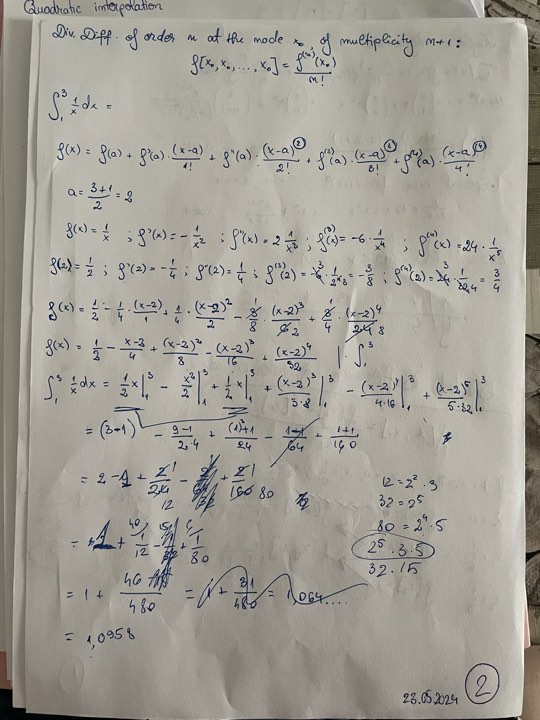 Quadratic interpolation
Div. Diff. of order n at the node x₀, of multiplicity n+1:
f[x₀, x₀, ..., x₀] = f⁽ⁿ⁾(x₀)/n!
∫₁³ 1/x dx =
f(x) = f(a) + f'(a)·(x-a)/1! + f''(a)·(x-a)²/2! + f⁽³⁾(a)·(x-a)³/3! + f⁽⁴⁾(a)·(x-a)⁴/4!
a = (3+1)/2 = 2
f(x) = 1/x ; f'(x) = -1/x² ; f''(x) = 2 1/x³ ; f⁽³⁾(x) = -6·1/x⁴ ; f⁽⁴⁾(x) = 24·1/x⁵
f(2) = 1/2 ; f'(2) = -1/4 ; f''(2) = 1/4 ; f⁽³⁾(2) = = -3/8 ; f⁽⁴⁾(2) = = 3/4
f(x) = 1/2 - 1/4·(x-2)/1 + 1/4·(x-2)²/2 - 3/8·(x-2)³/6 2 + 3/4·(x-2)⁴/24 8
f(x) = 1/2 - (x-2)/4 + (x-2)²/8 - (x-2)³/16 + (x-2)⁴/32 | ∫₁³
∫₁³ 1/x dx = 1/2 x|₁³ - x²/8|₁³ + 1/2 x|₁³ + (x-2)³/3·8|₁³ - (x-2)⁴/4·16|₁³ + (x-2)⁵/5·32|₁³
= (3-1) - (9-1)/2·4 + (1+1)/24 - (1-1)/64 + (1+1)/160
= 2 - 1 + 2/24 + 2/160 80
12
12 = 2²·3
32 = 2⁵
80 = 2⁴·5
2⁵·3·5
32·15
= 1 + 1/12 + 1/80
= 1 + 46/480 = 1 + 31/480 = 1,064....
= 1,0958
23.05.2024
2